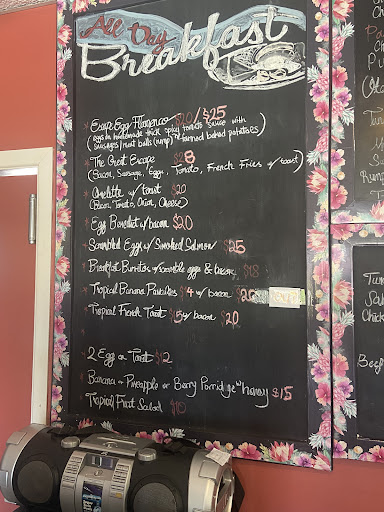 All Day
Breakfast
Escape Egg Flamenco $20/$25
(eggs on homemade thick spicy tomato sauce with
sausages/meat balls (rump) + fanned baked potatoes)
The Great Escape $28
(Bacon, Sausage, Eggs, Tomato, French Fries w/ toast)
Omelette w/ toast $20
(Bacon, Tomato, Onion, Cheese)
Egg Benedict w/ bacon $20
Scrambled Eggs w/ Smoked Salmon $25
Breakfast Burritos w/ scramble eggs & bacon $18
Tropical Banana Pancakes $ 4 w/ bacon
Tropical French Toast $15 w/ bacon $20
2 Egg on Toast $12
Banana or Pineapple or Berry Porridge w honey $15
Tropical Fruit Salad $10
Chick
Beef